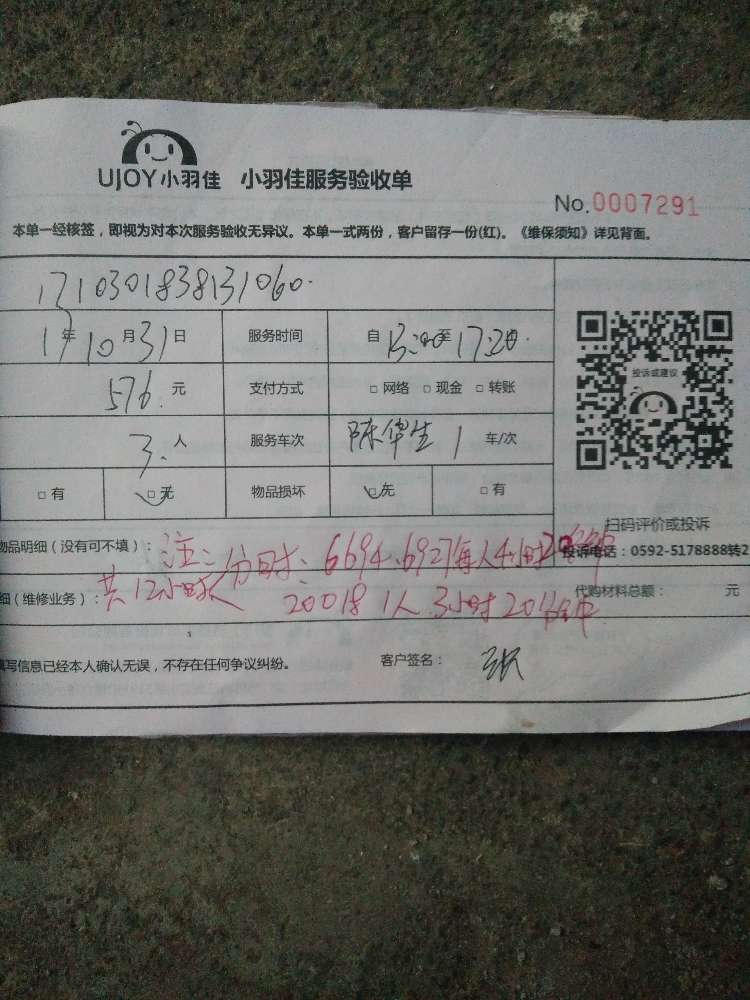 UJOY小羽佳 小羽佳服务验收单
No.0007291
本单一经核签，即视为对本次服务验收无异议。本单一式两份，客户留存一份(红)。《维保须知》详见背面。
1710301838131060.
17年10月31日 服务时间 自13:00至17:20.
576.元 支付方式 □网络 □现金 □转账
3.人 服务车次 陈华生1车/次
□有 □无 物品损坏 □无 □有
投诉或建议
扫码评价或投诉
投诉电话：0592-5178888转2
物品明细（没有可不填）：注：分时：6694、6927每人4小时20分钟
细(维修业务)：共12小时 20018 1人 3小时20分钟 代购材料总额： 元
填写信息已经本人确认无误，不存在任何争议纠纷。 客户签名：张